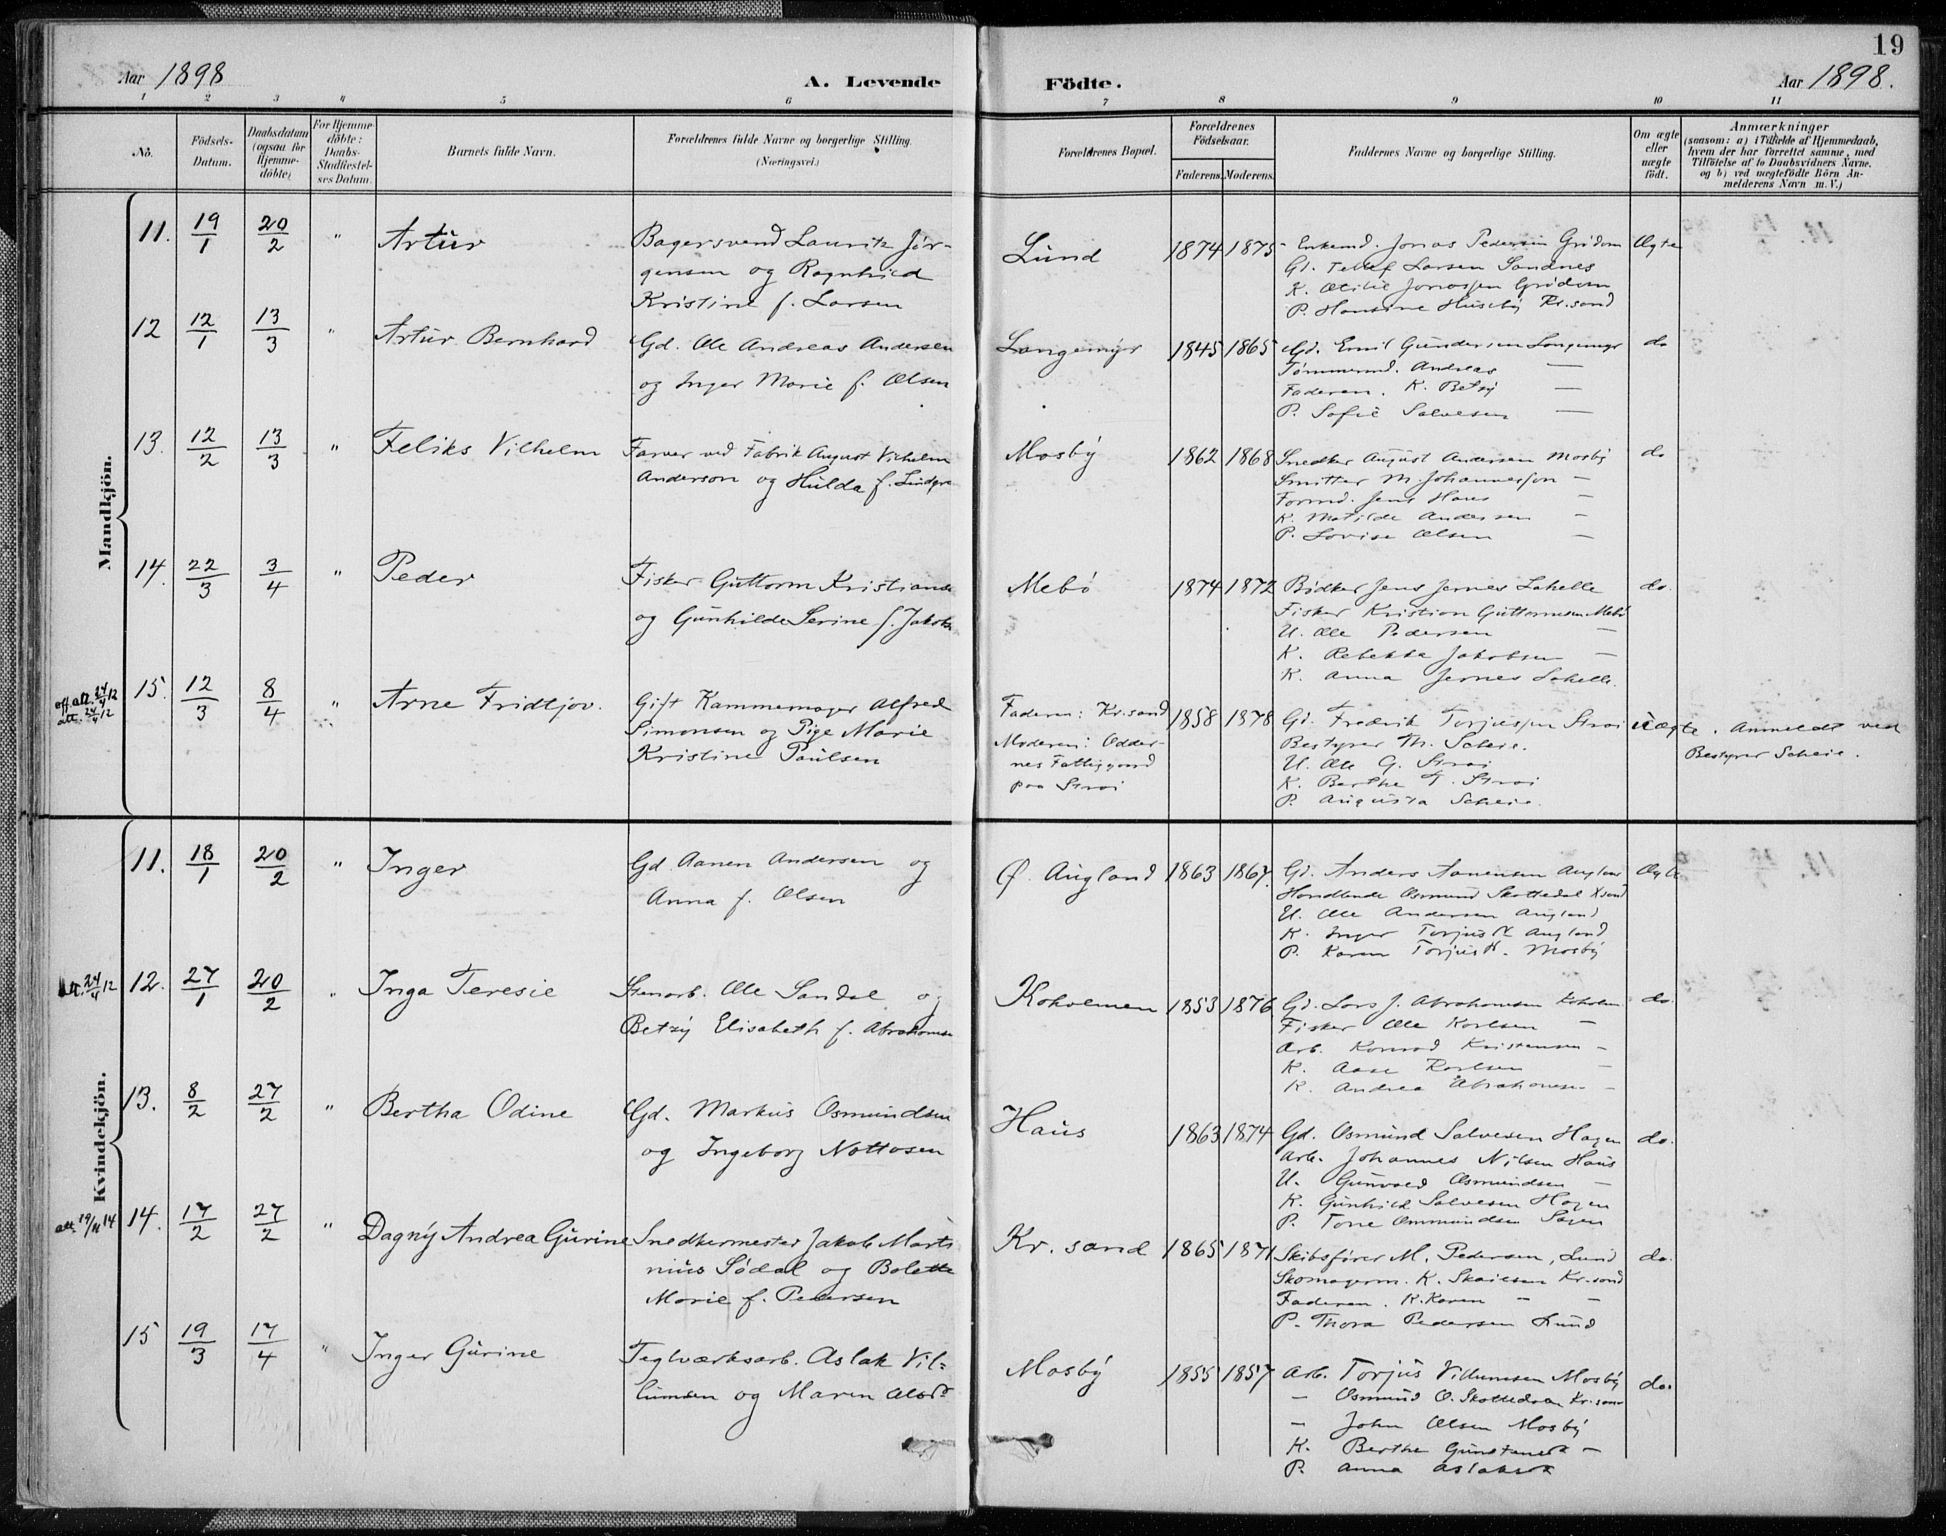 19
Aar 1898
A. Levende
Födte.
Aar 1898.
1 2 3 4 5 6 7 8 9 10 11
No.
Födsels-
Datum.
Daabsdatum
(ogsaa for
Hjemme-
döbte)
For Hjemme-
döbte:
Daabs-
Stadfæstel-
ses Datum.
Barnets fulde Navn.
Forældrenes fulde Navne og borgerlige Stilling.
(Næringsvei.)
Forældrenes Bopæl.
Forældrenes
Födselsaar.
Faderens. Moderens.
Faddernes Navne og borgerlige Stilling.
Om ægte
eller
uægte
födt.
Anmærkninger
(saasom: a) i Tilfælde af Hjemmedaab,
hvem der har forrettet samme, med
Tilföielse af to Daabsvidners Navne.
og b) ved uægtefödte Börn An-
melderens Navn m. V.)
Mandkjön.
11. 19/1 20/2 " Artur
Bagersvend Lauritz Jør-
gensen og Ragnhild
Kristine f. Larsen
Lund 1874 1875
Enkemd. Jonas Pedersen Grødum
Gd. Tellef Larsen Sandnes
K. Jonassen Grødum
P. Hansine Huseby Kr.sand
Ægte
12 12/1 13/3 " Artur Bernhard
Gd. Ole Andreas Andersen
og Inger Marie f. Olsen
Langemyr 1845 1865
Gd. Emil Gundersen Langemyr
Tømmermd. Andreas —
Faderen. K. Betzy —
P. Sofie Salvesen —
do
13. 12/2 13/3 " Feliks Vilhelm
Farver ved Fabrik August Vilhelm
Anderson og Hulda f.
Mosby 1862 1868
Snedker August Andersen Mosby
M. Johannessen —
Formd. Jens Haus —
K. Matilde Andersen —
P. Lovise Olsen —
do
14. 22/3 3/4 " Peder
Fisker Guttorm
og Gunhilde Serine f.
Mebø 1874 1872
Bødker Jens Jernes
Fisker Kristian Guttormsen Mebø
U. Ole Pedersen —
K. Rebekka Jakobsen —
K. Anna Jernes
do.
att. 24/4 12
15. 12/3 8/4 " Arne Fridtjov.
Gift Kammemager Alfred
Simonsen og Pige Marie
Kristine Paulsen
Faderen: Kr.sand
Moderen: Odder-
nes Fattiggaard
paa Strai
1858 1878
Gd. Fredrik Torjussen Strai
Bestyrer Th. Scheie.
U. Ole G. Strai
K. Berthe T. Strai
P. Augusta Scheie.
Uægte. Anmeldt ved
Bestyrer Scheie.
Kvindekjön.
11. 18/1 20/2 " Inger
Gd Aanen Andersen og
Anna f. Olsen
Ø. Augland 1863 1867.
Gd. Anders Aanensen
Handlende Osmund Skottedal Krsand
U. Ole Andersen Augland
K. Inger Torjus Augland
P. Karen Torjus Mosby
Ægte
24/4 12
12. 27/1 20/2 " Inga Teresie
Stenarb. Ole Sandal og
Betzy Elisabeth f.
Kokolemen 1853 1876
Gd. Lars J. Abrahamsen
Fisker Ole Karlsen —
Arb. Konrad Kristensen —
K. Aase Karlsen —
K. Andrea Abrahamsen —
do.
13. 8/2 27/2 " Bertha Odine
Gd. Markus Osmundsen
og Ingeborg
Haus 1863 1874
Gd. Osmund Salvesen Hagen
Arb. Johannes Nilsen Haus
U. Gunvald Osmundsen —
K. Gunhild Salvesen Hagen
P. Tone
do.
14
14. 17/2 27/2 " Dagny Andrea Gurine
Snedkermester Jakob Marti-
nius Södal og Bolette
Marie f. Pedersen
Kr. sand 1865 1871
Skibsfører M. Pedersen, Lund
Skomagerm. K. Kr.sand
Faderen. K. Karen — —
P. Thora Pedersen Lund
do.
15 19/3 17/4 " Inger Gurine
Teglværksarb. Aslak Vil-
lumsen og Maren
Mosby 1855 1857
Arb. Torjus Villumsen Mosby
— Osmund O.
— John Olsen Mosby
K. Berthe —
P. Anna
do.